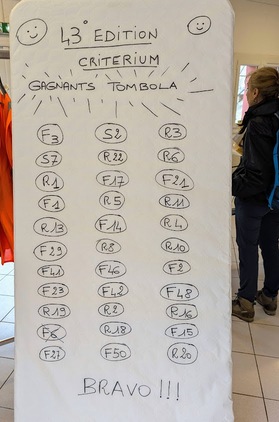 43° EDITION
CRITERIUM
GAGNANTS TOMBOLA
F3 S2 R3
S7 R22 R6
R1 F17 F21
F1 R5 R11
R13 F14 R4
F29 R8 R10
F41 F46 F2
F23 F42 F48
R19 R2 R16
F8 R18 F15
F27 F50 R20
BRAVO !!!